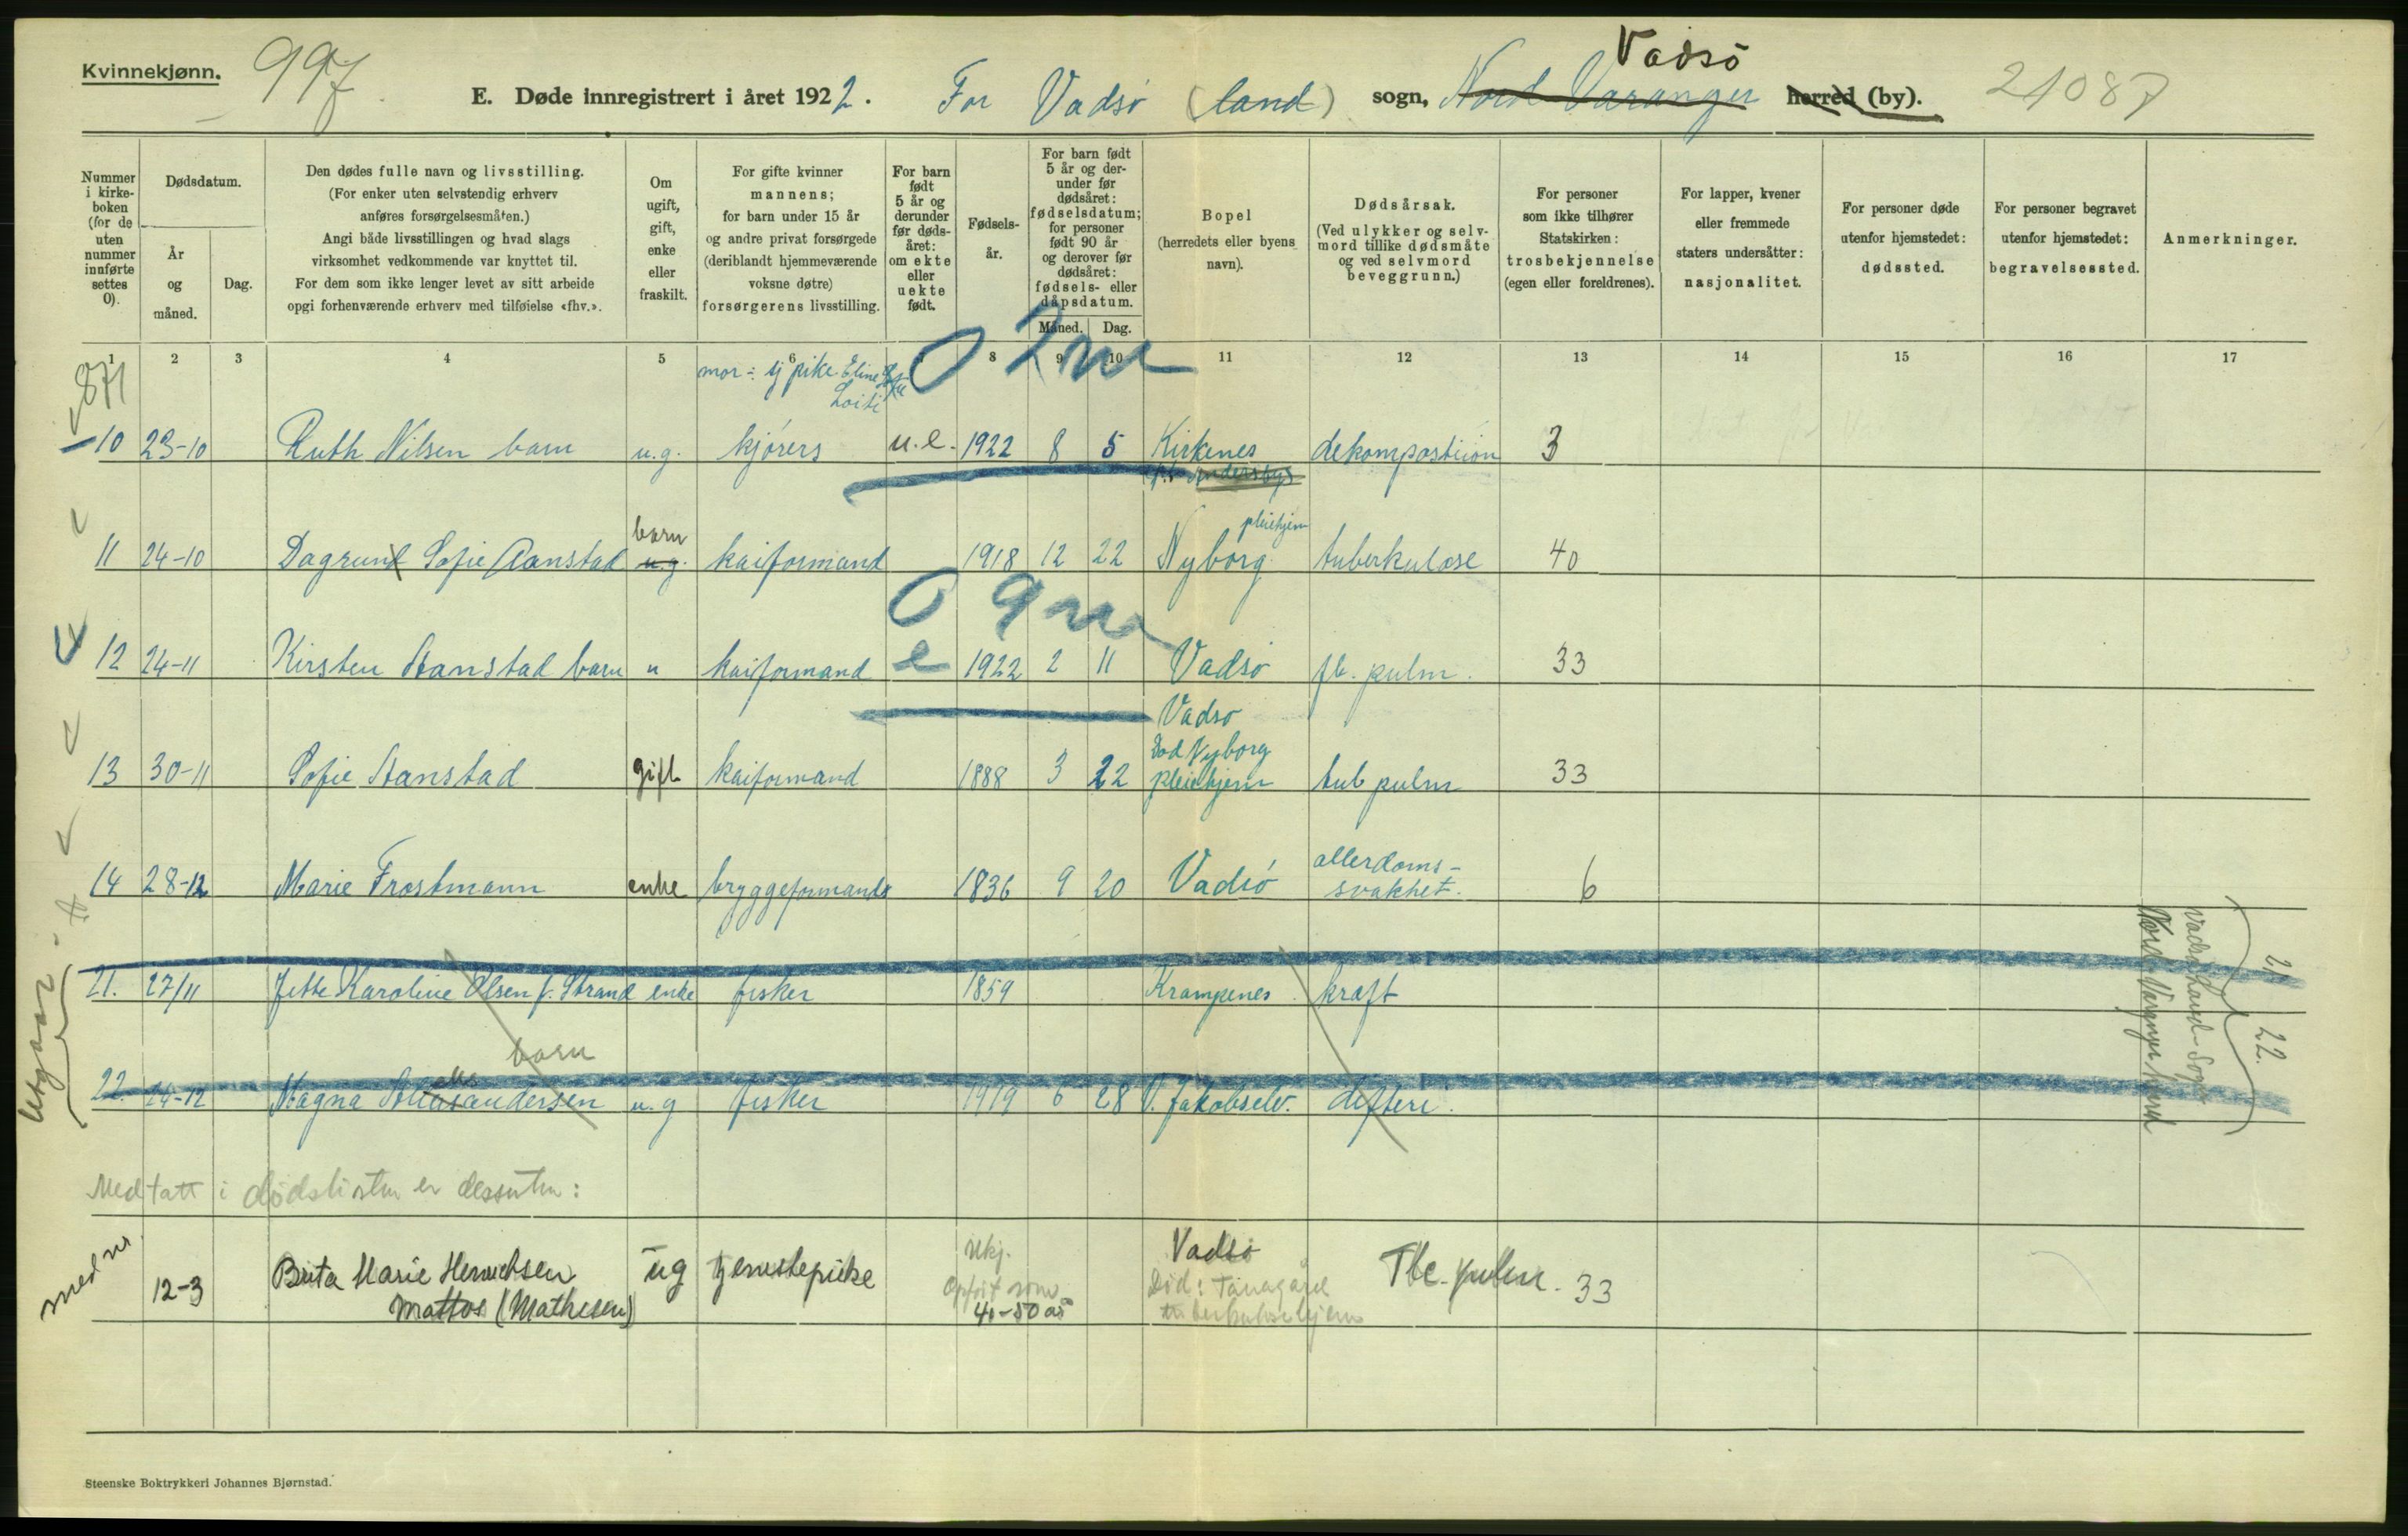 Kvinnekjønn.
997
E. Døde innregistrert i året 1922. For Vadsø (land) sogn, Nord Varanger Vadsö herred (by). 21087
Nummer i kirke-boken (for de uten nummer innførte settes 0).
Dødsdatum.
År og måned.
Dag.
Den dødes fulle navn og livsstilling.
(For enker uten selvstendig erhverv anføres forsørgelsesmåten.)
Angi både livsstillingen og hvad slags virksomhet vedkommende var knyttet til.
For dem som ikke lenger levet av sitt arbeide opgi forhenværende erhverv med tilføielse «fhv.».
Om ugift, gift, enke eller fraskilt.
For gifte kvinner mannens; for barn under 15 år og andre privat forsørgede (deriblandt hjemmeværende voksne døtre) forsørgerens livsstilling.
For barn født 5 år og derunder før døds-året: om ekte eller uekte født.
Fødsels-år.
For barn født 5 år og der-under før dødsåret: fødselsdatum; for personer født 90 år og derover før dødsåret: fødsels- eller dåpsdatum.
Måned. Dag.
Bopel (herredets eller byens navn).
Dødsårsak.
(Ved ulykker og selv-mord tillike dødsmåte og ved selvmord beveggrunn.)
For personer som ikke tilhører Statskirken: trosbekjennelse (egen eller foreldrenes).
For lapper, kvener eller fremmede staters undersåtter: nasjonalitet.
For personer døde utenfor hjemstedet: dødssted.
For personer begravet utenfor hjemstedet: begravelsessted.
Anmerkninger.
1 2 3 4 5 6 8 9 10 11 12 13 14 15 16 17
871
mor: tj pike Eline
0 2 m
10 23-10 Ruth Nilsen barn u.g. kjørers u.e. 1922 8 5 Kirkenes dekomposition 3
11 24-10 Dagrund Sofie Aanstad barn u.g. kaiformand 1918 12 22 Nyborg pleiehjem tuberkulose 40
0 9 m
12 24-11 Kirsten Aanstad barn u kaiformand e 1922 2 11 Vadsø tb. pulm. 33
13 30-11 Sofie Aanstad gift kaiformand 1888 3 22 Vadsø
död Nyborg
pleiehjem tub pulm 33
14 28-12 Marie Frostmann enke bryggeformands 1836 9 20 Vadsø alderdoms-
svakhet. 6
21. 27/11 Jette Karoline Olsen f. Strand enke fisker 1859 Krampenes kræft
22. 24-12 Magna andersen barn u.g fisker 1919 6 28 V. Jakobselv. difteri.
Utgaar
Vadsø Land Sogn
Nord-Varanger herred
21
22.
Medtatt i dødslisten er dessuten:
med nr. 12-3 Brita Marie Henrichsen
Mattos (Mathisen) ug tjenestepike Ukj.
Opført som
40-50 år Vadsö
Död: Tanagård
tuberkulosehjem Tbc. pulm. 33
Steenske Boktrykkeri Johannes Bjørnstad.